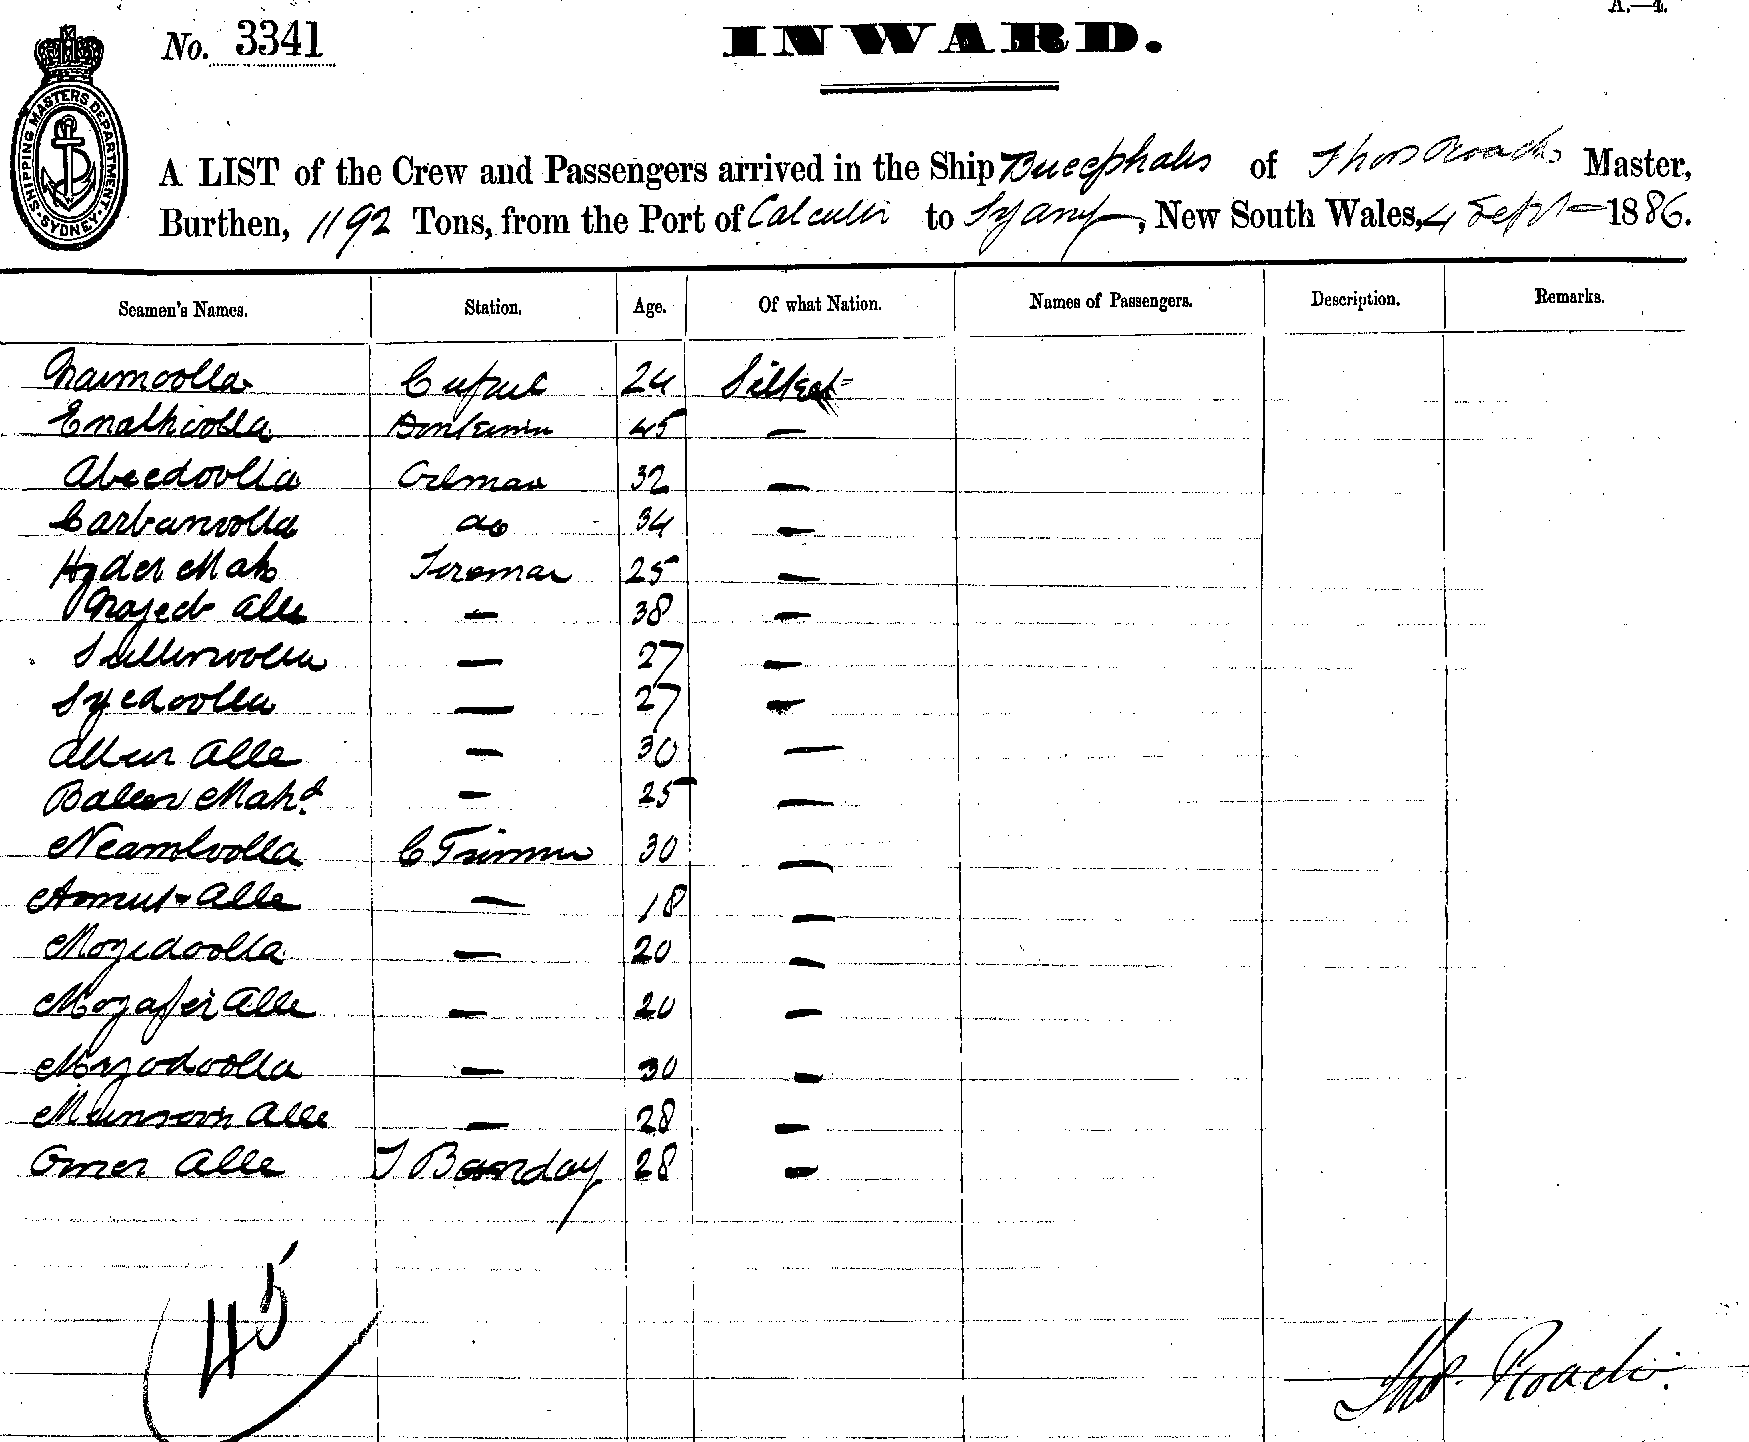 A.—4.
No. 3341
INWARD.
SHIPPING MASTERS DEPARTMENT SYDNEY
A LIST of the Crew and Passengers arrived in the Ship Bucephalus of Thos Roach Master,
Burthen, 1192 Tons, from the Port of Calcutta to Sydney, New South Wales, 4 Sept 1886.
Seamen's Names. Station. Age. Of what Nation. Names of Passengers. Description. Remarks.
Naimoolla 24 Silhet
45 —
Abeedoolla Oilman 32 —
Carbanoolla do 34 —
Hyder Mah Fireman 25 —
Nojeeb Alle — 38 —
— 27 —
Syedoolla — 27 —
Alle — 30 —
Mahd. — 25 —
C Trimmer 30 —
Alle — 18 —
Mozedoolla — 20 —
Mozafer Alle — 20 —
— 30 —
Munsoor Alle — 28 —
Omer Alle 28 —
45
Thos. Roach